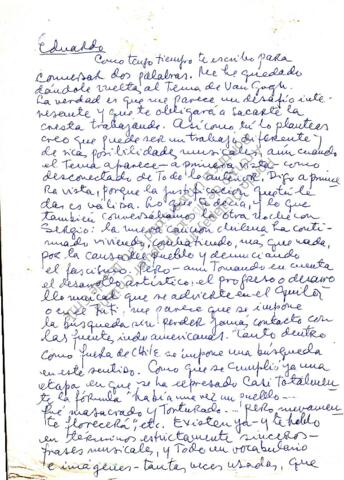 Eduardo
Como tengo tiempo te escribo para
conversar dos palabras. Me he quedado
dándole vuelta al Tema de Van Gogh.
La verdad es que me parece un desafío inte-
resante y que te obligará a sacarte la
cresta trabajando. Así como tú lo planteas
creo que puede ser un trabajo diferente y
de ricas posibilidades musicales, aún cuando
el Tema aparece a primera vista como
desconectado de Todo lo anterior. Digo a prime
ra vista, porque la justificación que tú le
das es válida. Lo que te decía, y lo que
también conversábamos la otra noche con
Sergio: la nueva canción chilena ha conti-
nuado viviendo, combatiendo, más que nada,
por la causa del pueblo y denunciando
el fascismo. Pero - aún Tomando en cuenta
el desarrollo artístico, el progreso o desarro
llo musical que se advierte en el Quila
o tu - me parece que se impone
la búsqueda sin perder jamás contacto con
las fuentes indoamericanas. Tanto dentro
como fuera de Chile se impone una búsqueda
en este sentido. Como que se cumplió ya una
etapa en que se ha expresado casi Totalmen
te la fórmula "había una vez un pueblo -
fue masacrado y Torturado - ... Pero nuevamen
te florecerá", etc. Existen ya - y te hablo
en términos estrictamente sinceros -
frases musicales, y Todo un vocabulario
e imágenes - tantas veces usadas, que